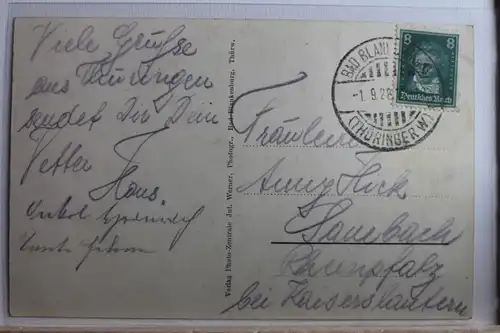 Viele Grüße
aus Thüringen
sendet Dir Dein
Vetter
Hans
Onkel
Tante
Verlag Photo-Zentrale Jul. Warner, Photogr., Bad Blankenburg, Thürw.
BAD BLANK
-1.9.28
(THÜRINGERW.)
8 8
Deutsches Reich
Fräulein
Anny
Rheinpfalz
bei Kaiserslautern